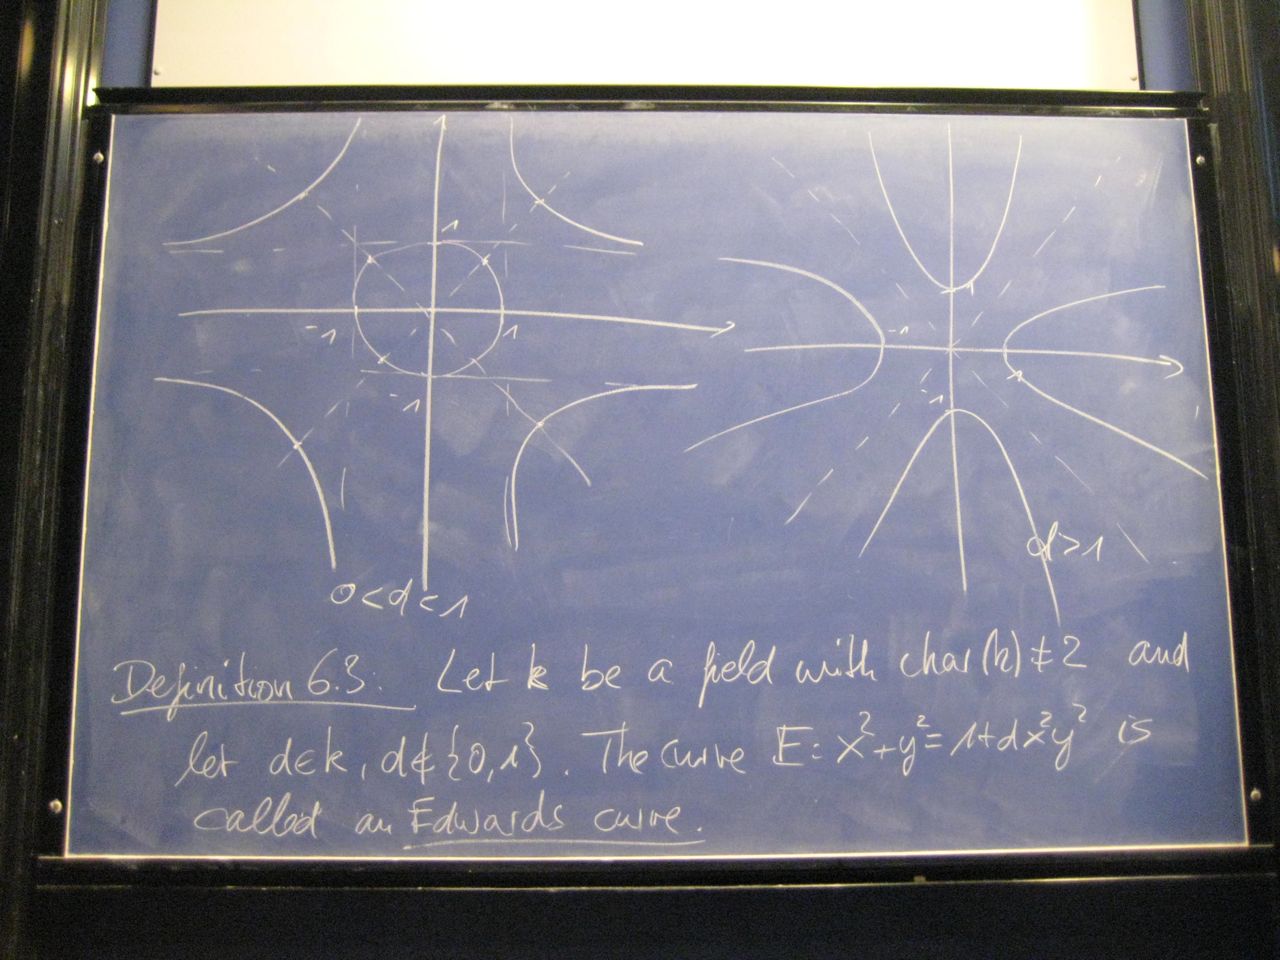 1
-1 1
-1
0<d<1
1
-1
1
-1
d>1
Definition 6.3. Let k be a field with char(k)≠2 and
let d∈k, d∉{0,1}. The curve E: x²+y²=1+dx²y² is
called an Edwards curve.